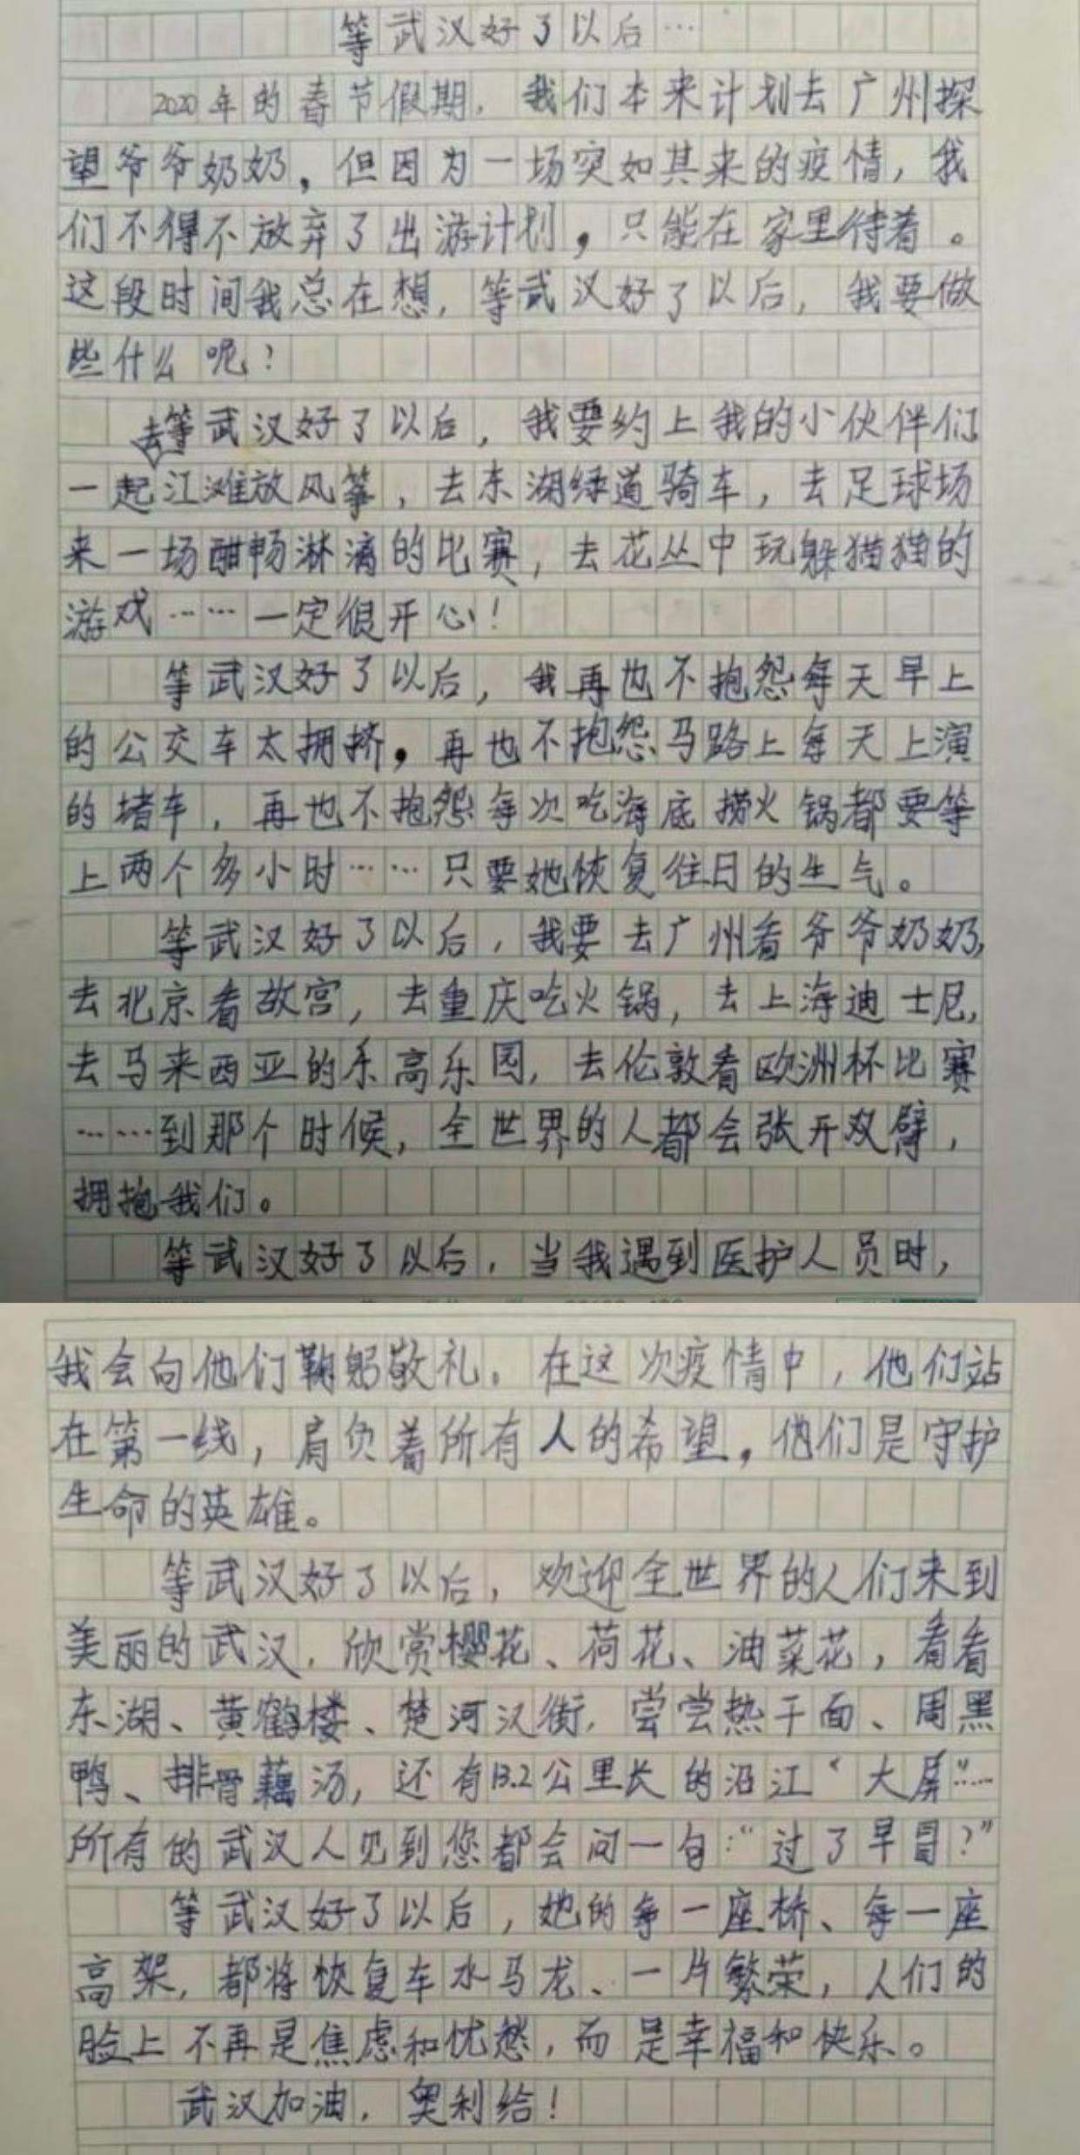 等武汉好了以后…
2020年的春节假期，我们本来计划去广州探
望爷爷奶奶，但因为一场突如其来的疫情，我
们不得不放弃了出游计划，只能在家里待着。
这段时间我总在想，等武汉好了以后，我要做
些什么呢？
等武汉好了以后，我要约上我的小伙伴们
一起去江滩放风筝，去东湖绿道骑车，去足球场
来一场酣畅淋漓的比赛，去花丛中玩躲猫猫的
游戏……一定很开心！
等武汉好了以后，我再也不抱怨每天早上
的公交车太拥挤，再也不抱怨马路上每天上演
的堵车，再也不抱怨每次吃海底捞火锅都要等
上两个多小时……只要她恢复往日的生气。
等武汉好了以后，我要去广州看爷爷奶奶，
去北京看故宫，去重庆吃火锅，去上海迪士尼，
去马来西亚的乐高乐园，去伦敦看欧洲杯比赛
……到那个时候，全世界的人都会张开双臂，
拥抱我们。
等武汉好了以后，当我遇到医护人员时，
我会向他们鞠躬敬礼。在这次疫情中，他们站
在第一线，肩负着所有人的希望，他们是守护
生命的英雄。
等武汉好了以后，欢迎全世界的人们来到
美丽的武汉，欣赏樱花、荷花、油菜花，看看
东湖、黄鹤楼、楚河汉街，尝尝热干面、周黑
鸭、排骨藕汤，还有13.2公里长的沿江“大屏”……
所有的武汉人见到您都会问一句：“过了早冒？”
等武汉好了以后，她的每一座桥、每一座
高架，都将恢复车水马龙、一片繁荣，人们的
脸上不再是焦虑和忧愁，而是幸福和快乐。
武汉加油，奥利给！